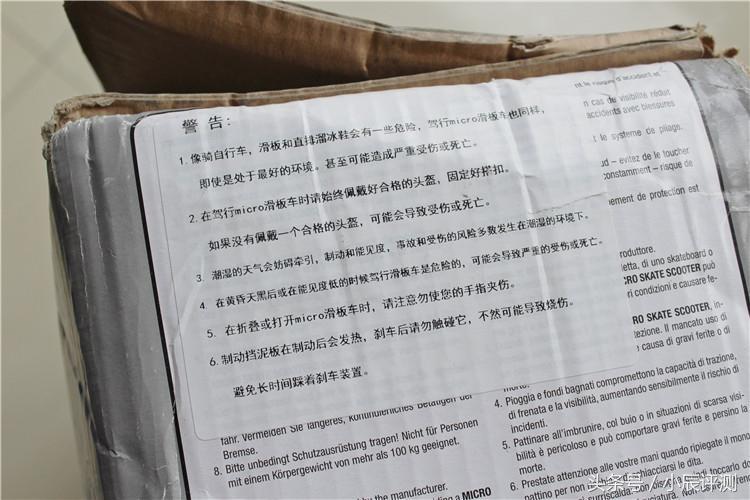 警告:
1. 像骑自行车，滑板和直排溜冰鞋会有一些危险，驾行micro滑板车也同样，
即使是处于最好的环境。甚至可能造成严重受伤或死亡。
2. 在驾行micro滑板车时请始终佩戴好合格的头盔，固定好搭扣。
如果没有佩戴一个合格的头盔，可能会导致受伤或死亡。
3. 潮湿的天气会妨碍牵引，制动和能见度，事故和受伤的风险多数发生在潮湿的环境下。
4. 在黄昏天黑后或在能见度低的时候驾行滑板车是危险的，可能会导致严重的受伤或死亡。
5. 在折叠或打开micro滑板车时，请注意勿使您的手指夹伤。
6. 制动挡泥板在制动后会发热，刹车后请勿触碰它，不然可能导致烧伤。
避免长时间踩着刹车装置。
n cas de visibilité réduit
accidents avec blessures
le système de pliage.
ud – évitez de le toucher
onstamment – risque de
pement de protection est
roduttore.
letta, di uno skateboard o
CRO SKATE SCOOTER può
ri condizioni e causare fe-
RO SKATE SCOOTER, in-
tezione. Il mancato uso di
causa di gravi ferite o di
morte.
4. Pioggia e fondi bagnati compromettono la capacità di trazione,
di frenata e la visibilità, aumentando sensibilmente il rischio di
incidenti.
5. Pattinare all'imbrunire, col buio o in situazioni di scarsa visi-
bilità è pericoloso e può comportare gravi ferite e persino la
morte.
6. Prestate attenzione alle vostre mani quando ripiegate il mono
schiacciarsi le dita.
fahr. Vermeiden Sie längeres, kontinuierliches Betätigen der
Bremse.
8. Bitte unbedingt Schutzausrüstung tragen! Nicht für Personen
mit einem Körpergewicht von mehr als 100 kg geeignet.
by the manufacturer.
ding a MICRO
头条号/小辰评测